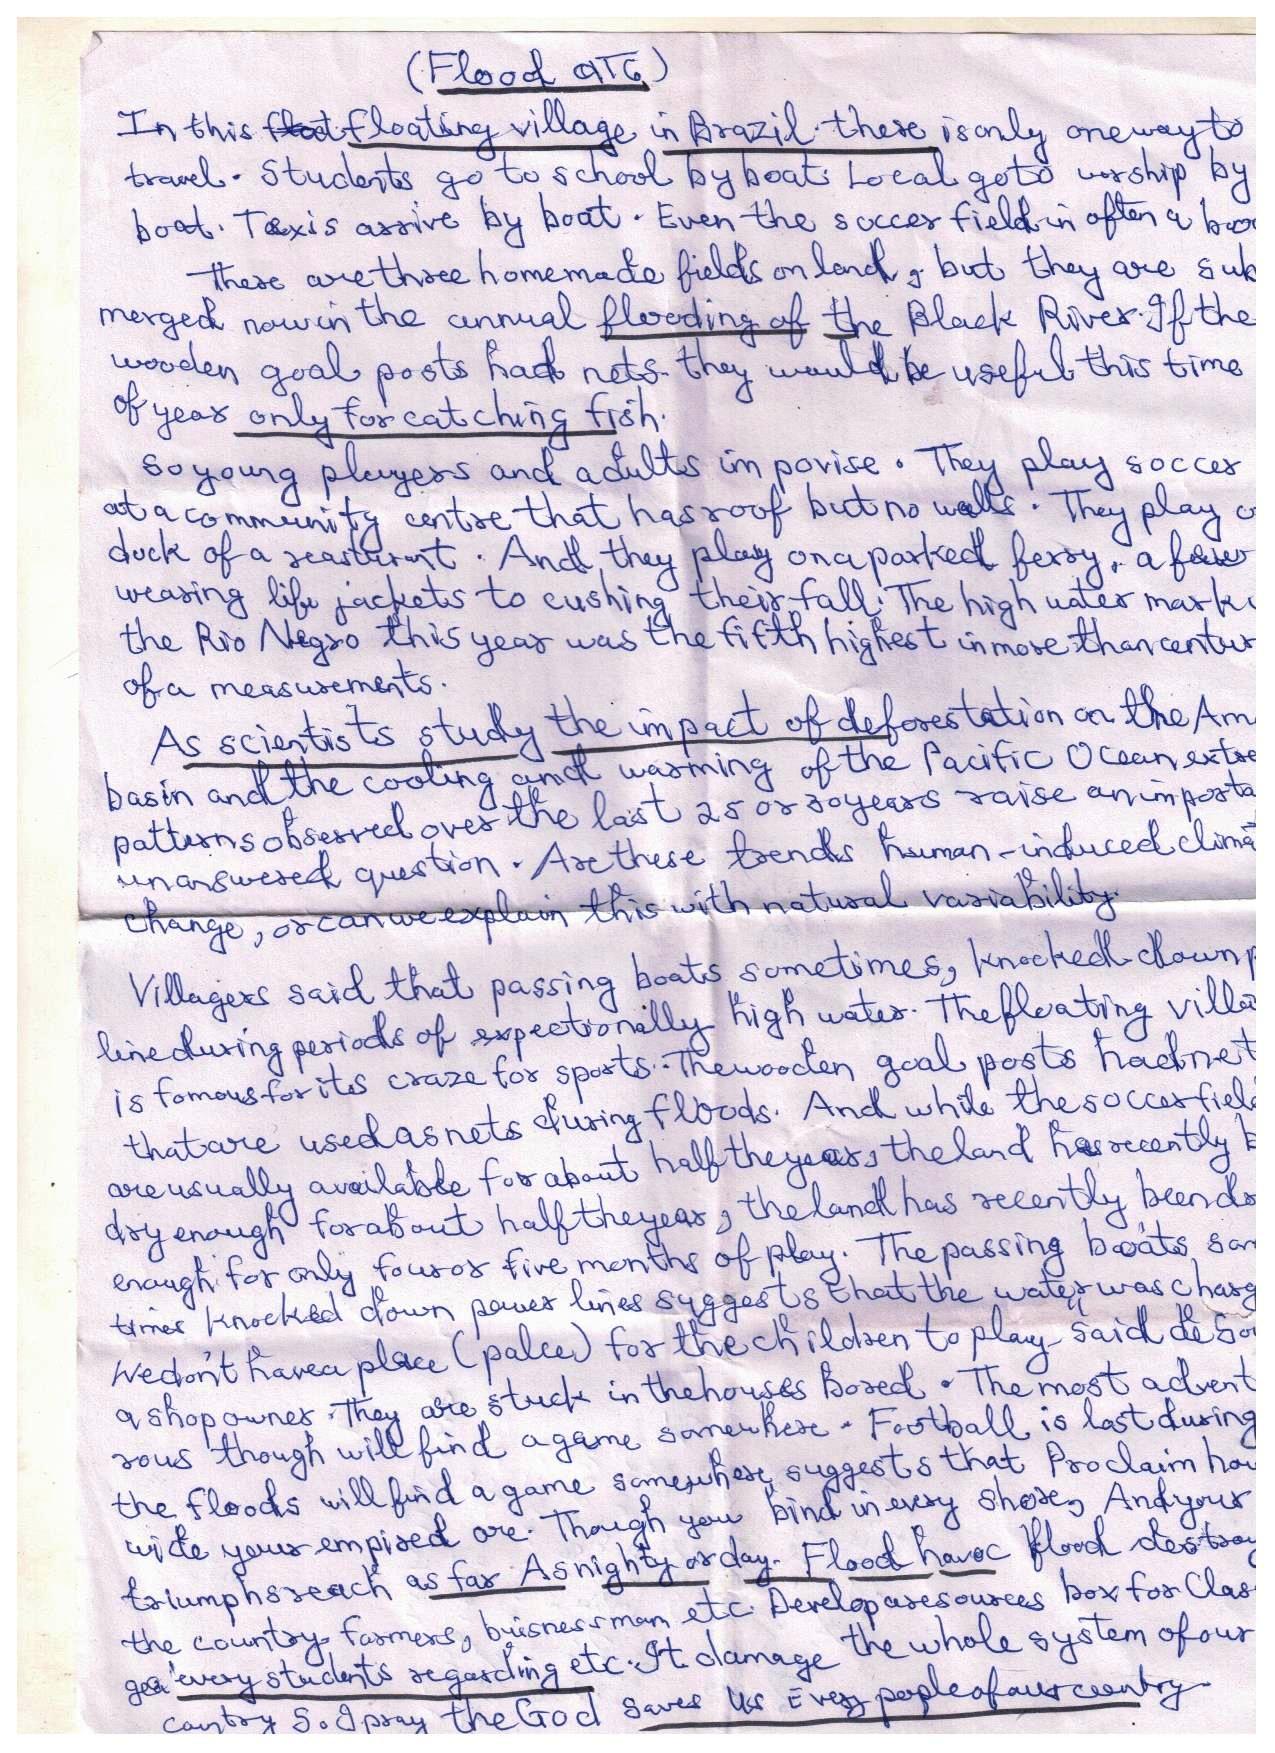 (Flood
In this floating village in Brazil. there is only one way to
travel. Students go to school by boat. Local go to worship by
boat. Taxis arrive by boat. Even the soccer field in often a
There are three homemade fields on land, but they are sub
merged now in the annual flooding of the Black River. If the
wooden goal posts had nets. they would be useful this time
of year only for catching fish.
So young players and adults impovise. They play soccer
at a community centre that has roof but no walls. They play
duck of a And they play on a parked ferry, a few
wearing life jackets to cushing their fall. The high water mark
the Rio Negro this year was the fifth highest in more than centur
of a measurements.
As scientists study the impact of deforestation on the Am
basin and the cooling and warming of the Pacific Ocean extre
patterns observed over the last 25 or 30 years raise an importa
unanswered question. Are these trends human-induced clima
change, or can we explain this with natural variability.
Villagers said that passing boats sometimes, knocked down p
line during periods of expectionally high water. The floating villa
is famous for its craze for sports. The wooden goal posts had net
that are used as nets during floods. And while the soccer field
are usually available for about half the year, the land has recently b
dry enough for about half the year, the land has recently been
enough for only four or five months of play. The passing boats, som
times knocked down power lines suggests that the water was charg
We don't have a place (palce) for the children to play said de
a shop owner. They are stuck in the houses bored. The most advent
rous though will find a game somewhere. Football is last during
the floods will find a game somewhere, suggests that Proclaim how
wide your empired are. Though you bind in every shore, And your
triumphs reach as far As nighty or day. Flood havoc flood destroy
the country farmers, buisnessman etc. Develop a resources box for Clas
every students regarding etc. It damage the whole system of our
country So I pray the God saves us Every people of our country.